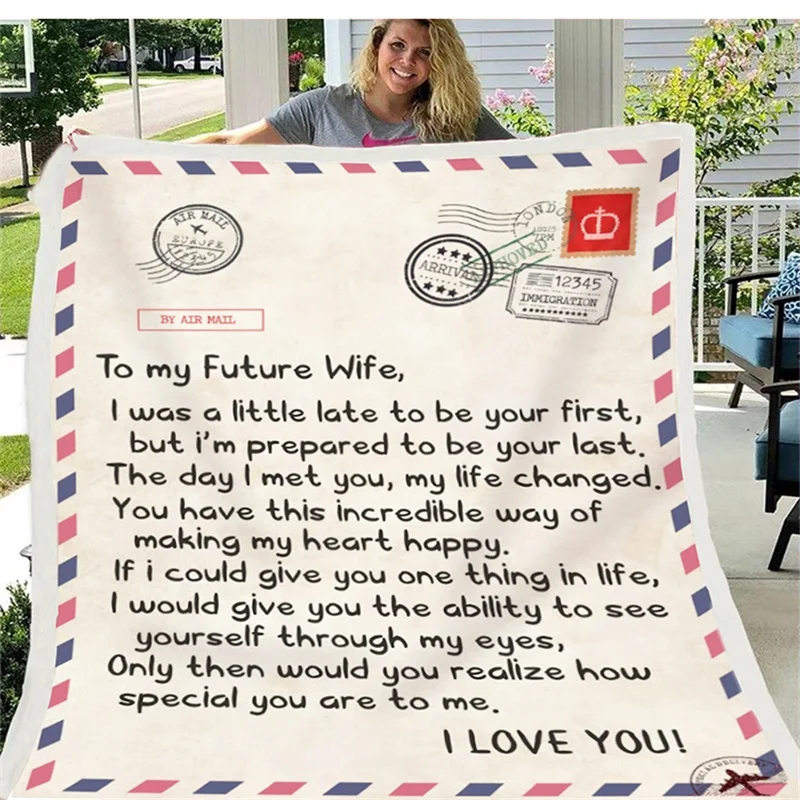 AIR MAIL
EUROPE
LONDO
ARRIVAL
12345
IMMIGRATION
BY AIR MAIL
To my Future Wife,
I was a little late to be your first,
but i'm prepared to be your last.
The day I met you, my life changed.
You have this incredible way of
making my heart happy.
If i could give you one thing in life,
I would give you the ability to see
yourself through my eyes,
Only then would you realize how
special you are to me.
I LOVE YOU!